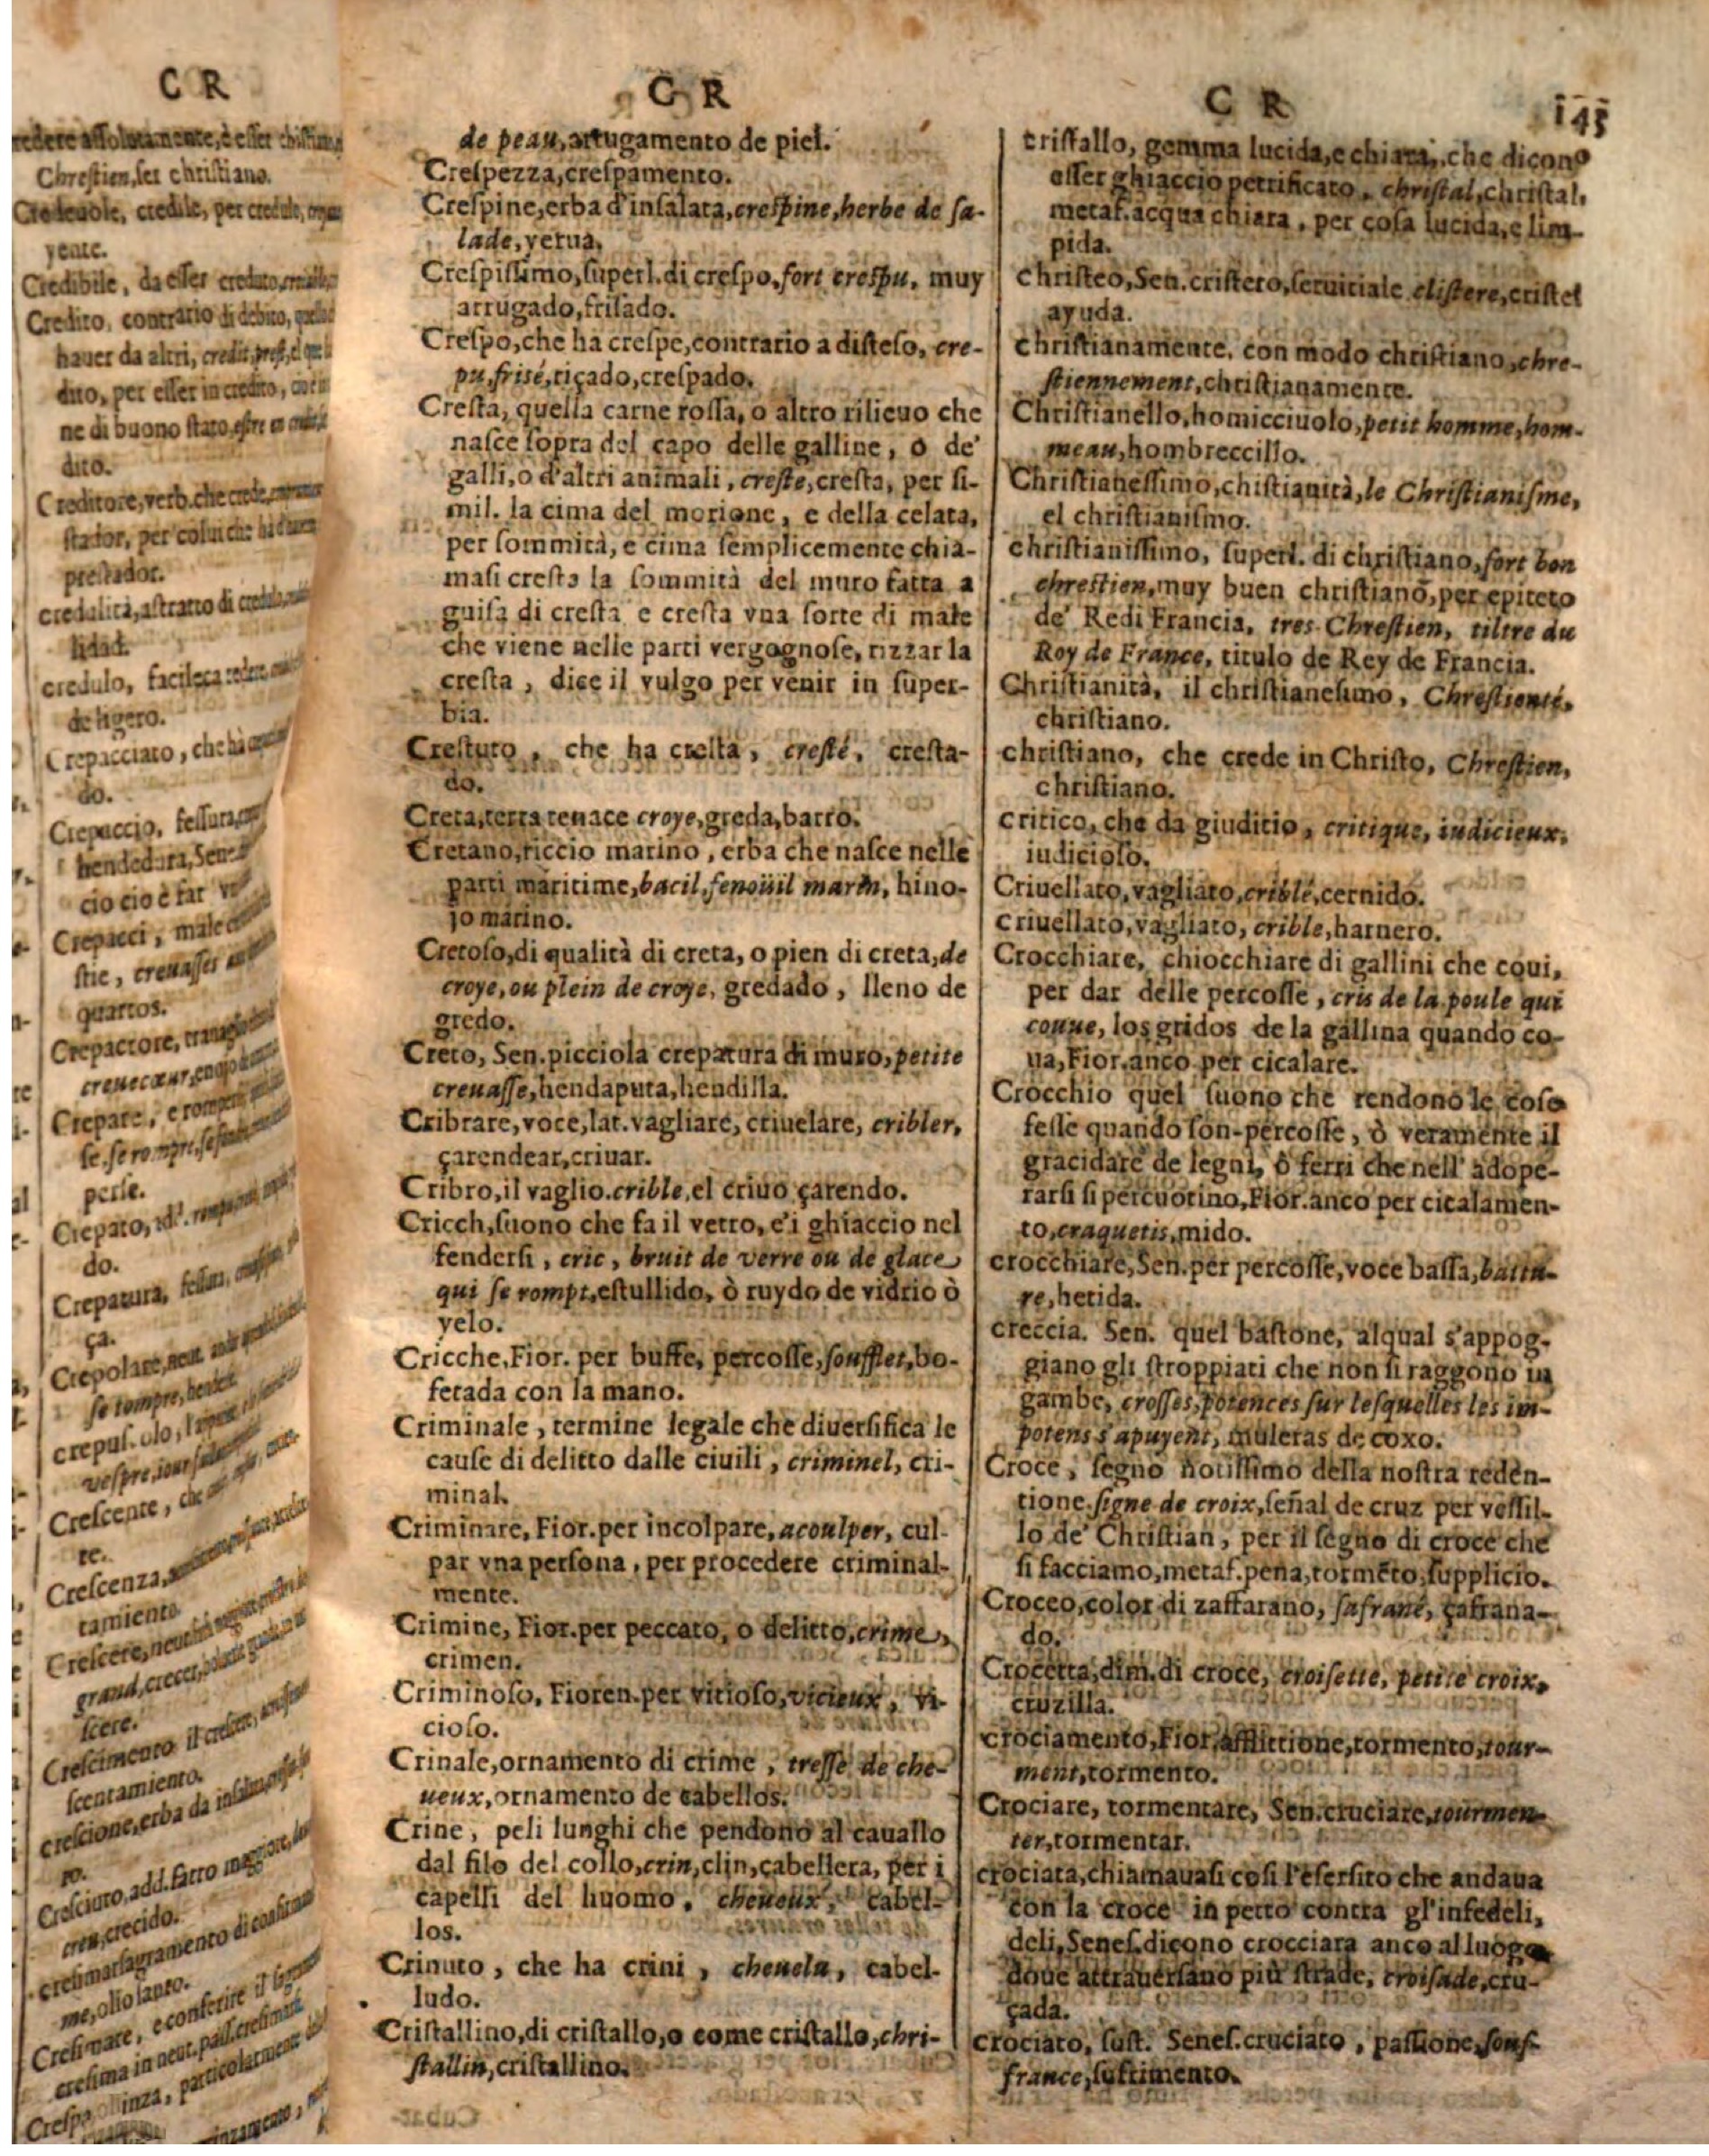 C R
Chrestien, ser christiano.
Credeuole, credile, per credulo,
yente.
Credibile, da esser creduto,
Credito, contrario di debito,
hauer da altri, credit,
dito, per esser in credito,
ne di buono stato,
dito.
Creditore, verb. che crede,
stador, per colui che
prestador.
credulità, astratto di
lidad.
credulo, facile a
de ligero.
Crepacciato, che hà
do.
Crepaccio, fessura,
hendedura, Sen.
cio cio è far
Crepacci, male
stie, creuasses
quartos.
Crepactore,
creuecœur, enojo
Crepare, e
se. se rompre,
perse.
Crepato,
do.
Crepatura,
ça.
Crepolare, neut.
se rompre,
crepus. olo,
vespre,
Crescente, che
te.
Crescenza,
tamiento.
Crescere,
grand, crecer,
scere.
Crescimento il crescere,
scentamiento.
crescione, erba da insalata,
ro.
Cresciuto, add. fatto maggiore,
creu, crecido.
cresimar sagramento di
me, olio santo.
Cresimare, e conferire il
cresima in neut. pass. cresimarsi
inza, particolarmente
C R
de peau, arrugamento de piel.
Crespezza, crespamento.
Crespine, erba d'insalata, crespine, herbe de sa-
lade, yerua.
Crespissimo, superl. di crespo, fort crespu, muy
arrugado, frisado.
Crespo, che ha crespe, contrario a disteso, cre-
pu, frisé, riçado, crespado.
Cresta, quella carne rossa, o altro rilieuo che
nasce sopra del capo delle galline, o de'
galli, o d'altri animali, creste, cresta, per si-
mil. la cima del morione, e della celata,
per sommità, e cima semplicemente chia-
masi cresta la sommità del muro fatta a
guisa di cresta e cresta vna sorte di male
che viene nelle parti vergognose, rizzar la
cresta, dice il vulgo per venir in super-
bia.
Cresturo, che ha cresta, cresté, cresta-
do.
Creta, terra tenace croye, greda, barro.
Cretano, riccio marino, erba che nasce nelle
parti maritime, bacil, fenoüil marin, hino-
jo marino.
Cretoso, di qualità di creta, o pien di creta, de
croye, ou plein de croye, gredado, lleno de
gredo.
Creto, Sen. picciola crepatura di muro, petite
creuasse, hendaputa, hendilla.
Cribrare, voce, lat. vagliare, criuelare, cribler,
çarendear, criuar.
Cribro, il vaglio. crible, el criuo çarendo.
Cricch, suono che fa il vetro, e'i ghiaccio nel
fendersi, cric, bruit de verre ou de glace
qui se rompt, estullido, ò ruydo de vidrio ò
yelo.
Cricche, Fior. per buffe, percosse, soufflet, bo-
fetada con la mano.
Criminale, termine legale che diuersifica le
cause di delitto dalle ciuili, criminel, cri-
minal.
Criminare, Fior. per incolpare, acoulper, cul-
par vna persona, per procedere criminal-
mente.
Crimine, Fior. per peccato, o delitto, crime,
crimen.
Criminoso, Fioren. per vitioso, vicieux, vi-
cioso.
Crinale, ornamento di crime, tresse de che-
ueux, ornamento de cabellos.
Crine, peli lunghi che pendono al cauallo
dal filo del collo, crin, clin, cabellera, per i
capelli del huomo, cheueux, cabel-
los.
Crinuto, che ha crini, cheuelu, cabel-
ludo.
Cristallino, di cristallo, o come cristallo, chri-
stallin, cristallino.
C R 145
cristallo, gemma lucida, e chiara, che dicono
esser ghiaccio petrificato, christal, christal,
metaf. acqua chiara, per cosa lucida, e lim-
pida.
christeo, Sen. cristero, seruitiale clistere, cristel
ayuda.
christianamente, con modo christiano, chre-
stiennement, christianamente.
Christianello, homicciuolo, petit homme, hom-
meau, hombreccillo.
Christianessimo, chistianità, le Christianisme,
el christianismo.
christianissimo, superl. di christiano, fort bon
chrestien, muy buen christiano, per epiteto
de' Redi Francia, tres Chrestien, tiltre du
Roy de France, titulo de Rey de Francia.
Christianità, il christianesimo, Chrestienté,
christiano.
christiano, che crede in Christo, Chrestien,
christiano.
critico, che da giuditio, critique, iudicieux,
iudicioso.
Criuellato, vagliato, criblé, cernido.
criuellato, vagliato, crible, harnero.
Crocchiare, chiocchiare di gallini che coui,
per dar delle percosse, cris de la poule qui
couue, los gridos de la gallina quando co-
ua, Fior. anco per cicalare.
Crocchio quel suono che rendono le cose
fesse quando son-percosse, ò veramente il
gracidare de legni, ò ferri che nell' adope-
rarsi si percuotino, Fior. anco per cicalamen-
to, craquetis, mido.
crocchiare, Sen. per percosse, voce bassa, battu-
re, herida.
creccia. Sen. quel bastone, alqual s'appog-
giano gli stroppiati che non si raggono in
gambe, crosses, potences sur lesquelles les im-
potens s'apuyent, muletas de coxo.
Croce, segno notissimo della nostra reden-
tione. signe de croix, señal de cruz per vessil-
lo de' Christian, per il segno di croce che
si facciamo, metaf. pena, tormēto, supplicio.
Croceo, color di zaffarano, safrané, çafrana-
do.
Crocetta, dim. di croce, croisette, petite croix,
cruzilla.
crociamento, Fior. afflittione, tormento, tour-
ment, tormento.
Crociare, tormentare, Sen. cruciare, tourmen-
ter, tormentar.
crociata, chiamauasi cosi l'esersito che andaua
con la croce in petto contra gl'infedeli,
deli, Senes. dicono crocciara anco al luogo
doue attrauersano più strade, croisade, cru-
çada.
crociato, sust. Senes. cruciato, passione, souf-
france, sufrimento.